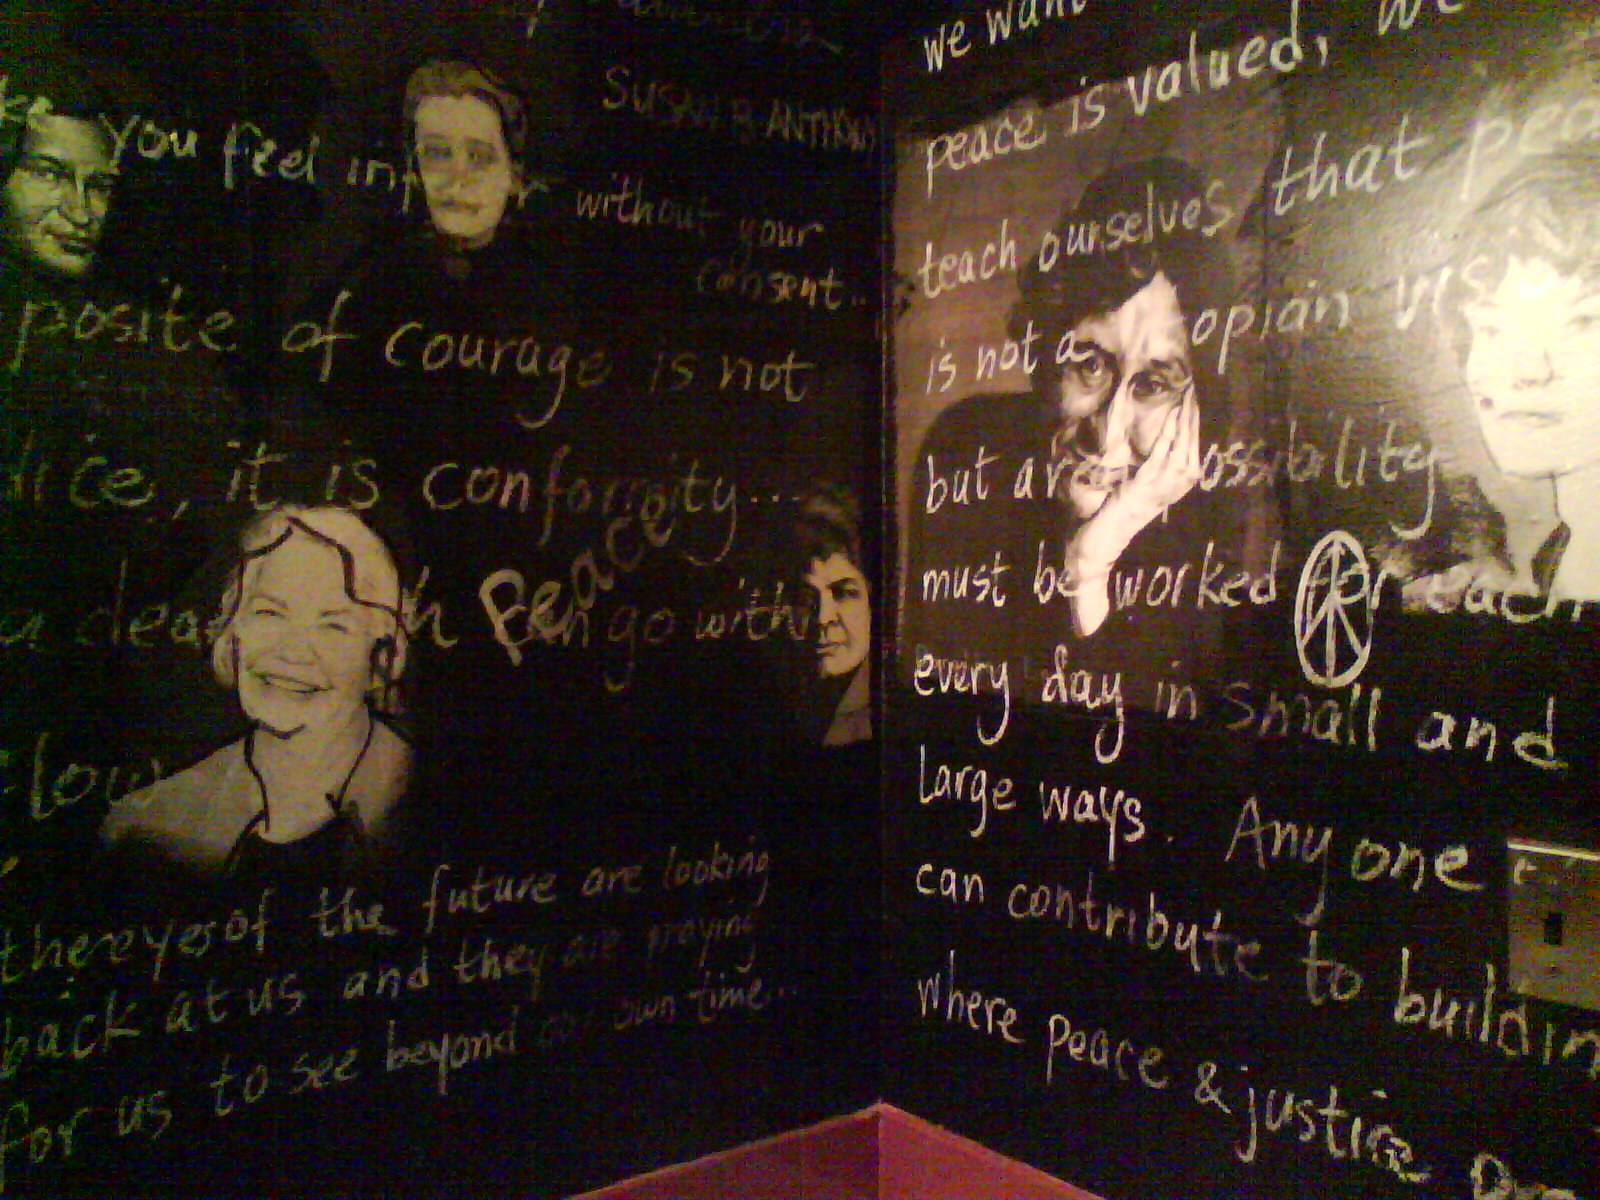 SUSAN B ANTHONY
you feel inf r without your
consent..
posite of courage is not
dice, it is conformity...
Peace
a dea h can go with
flow
there yes of the future are looking
back at us and they are praying
for us to see beyond our own time...
we want
peace is valued, we
teach ourselves that pea
is not a opian vis
but a rea possibility
must be worked for each
every day in small and
large ways. Anyone
can contribute to buildin
where peace & justice